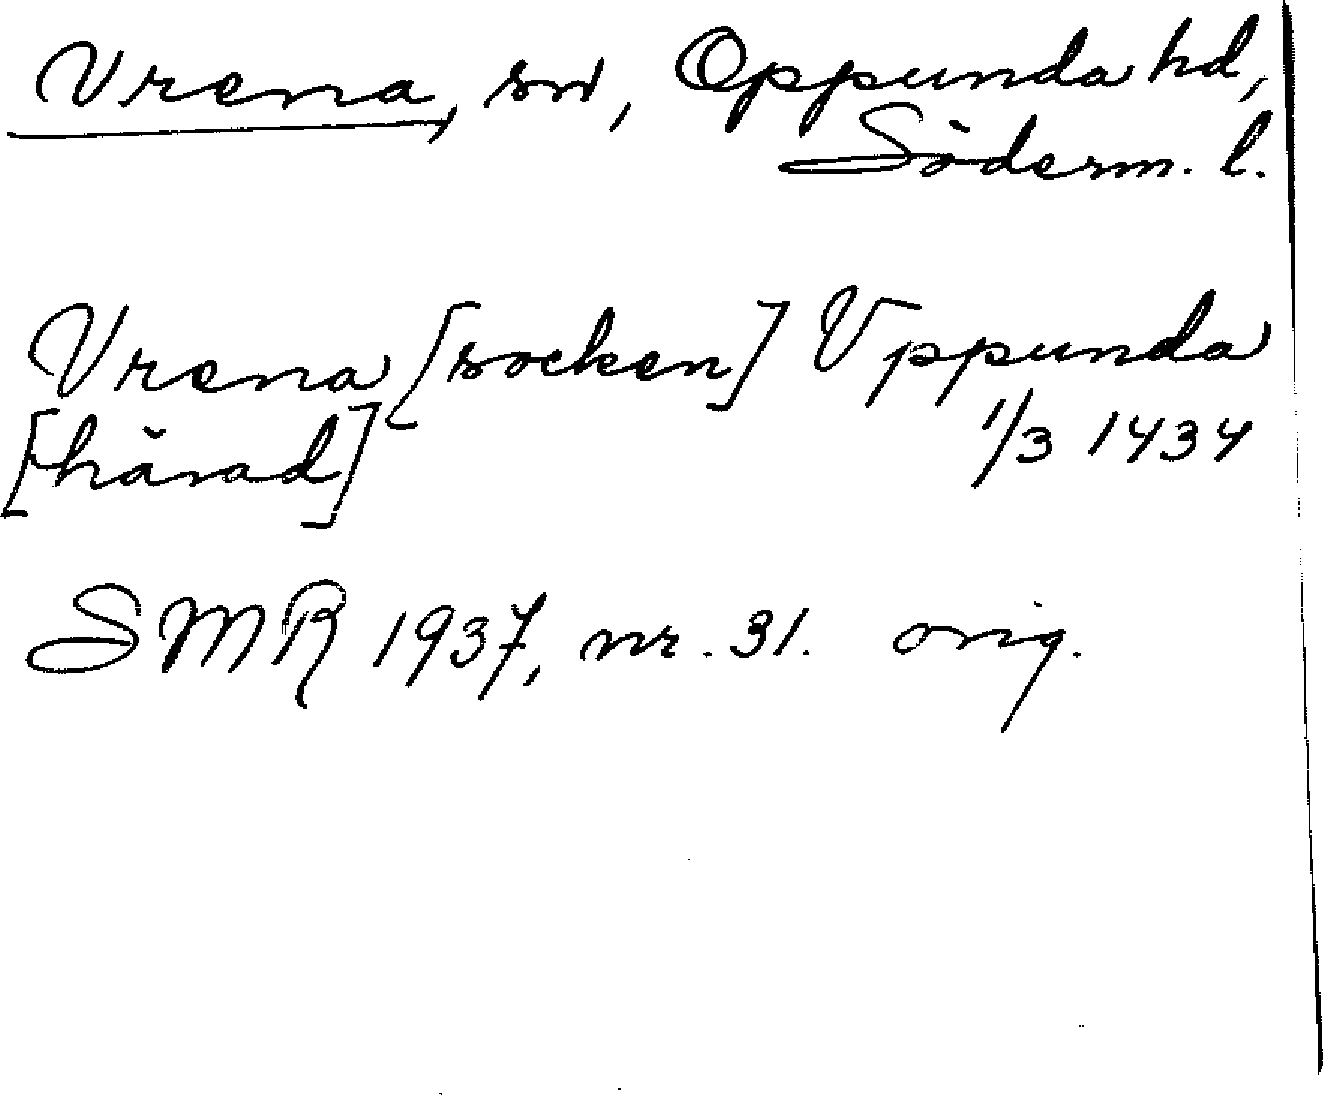 Vrena, sn, Oppunda hd,
Söderm. l.
Vrena [socken] Vppunda
[härad] 1/3 1434
SMR 1937, nr. 31. orig.